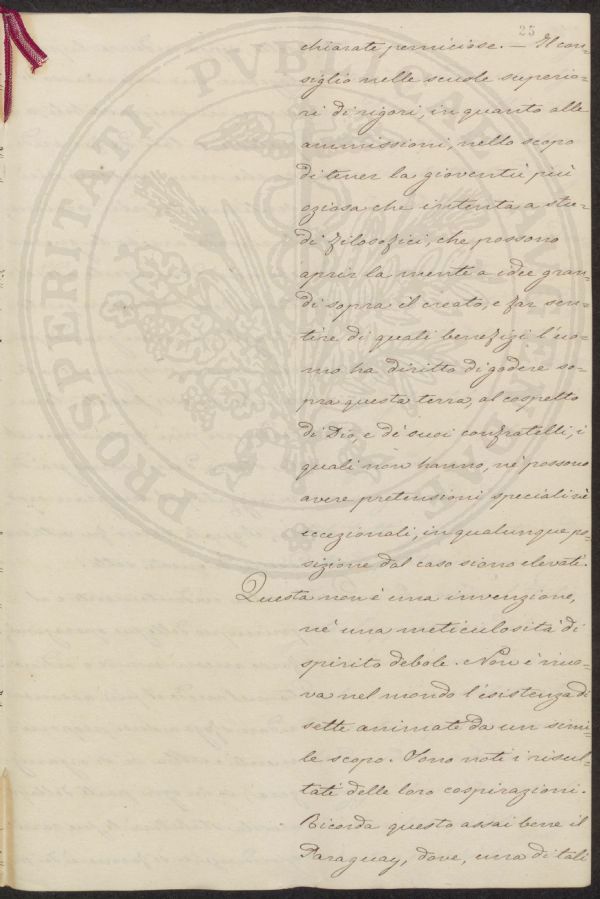 23
chiarate perniciose. — Il con-
siglio nelle scuole superio-
ri di rigori, in quanto alle
ammissioni, nello scopo
di tener la gioventù più
oziosa che intenta a stu-
di filosofici, che possono
aprir la mente a idee gran-
di sopra il creato, e far sen-
tire di quali benefizi l'uo-
mo ha diritto di godere so-
pra questa terra, al cospetto
di Dio, e de' suoi confratelli, i
quali non hanno, nè possono
avere pretensioni speciali nè
eccezionali, in qualunque po-
sizione dal caso siano elevati.
Questa non è una invenzione,
nè una meticulosità di
spirito debole. Non è nuo-
va nel mondo l'esistenza di
sette animate da un simi-
le scopo. Sono noti i risul-
tati delle loro cospirazioni.
Ricorda questo assai bene il
Paraguay, dove, una di tali
PROSPERITATI PVBLICAE AVGENDAE